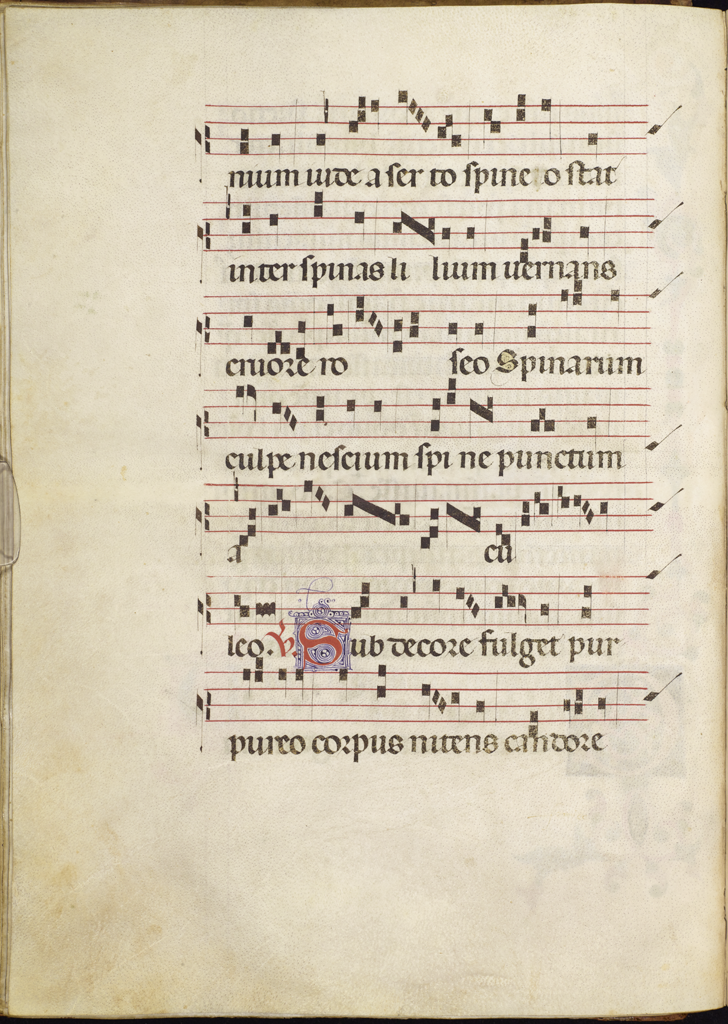 nium uide a ser to spine o stat
inter spinas li lium uernans
cruore ro seo Spinarum
culpe nescium spi ne punctum
a cu
leo. V. Sub decore fulget pur
pureo corpus nitens candore